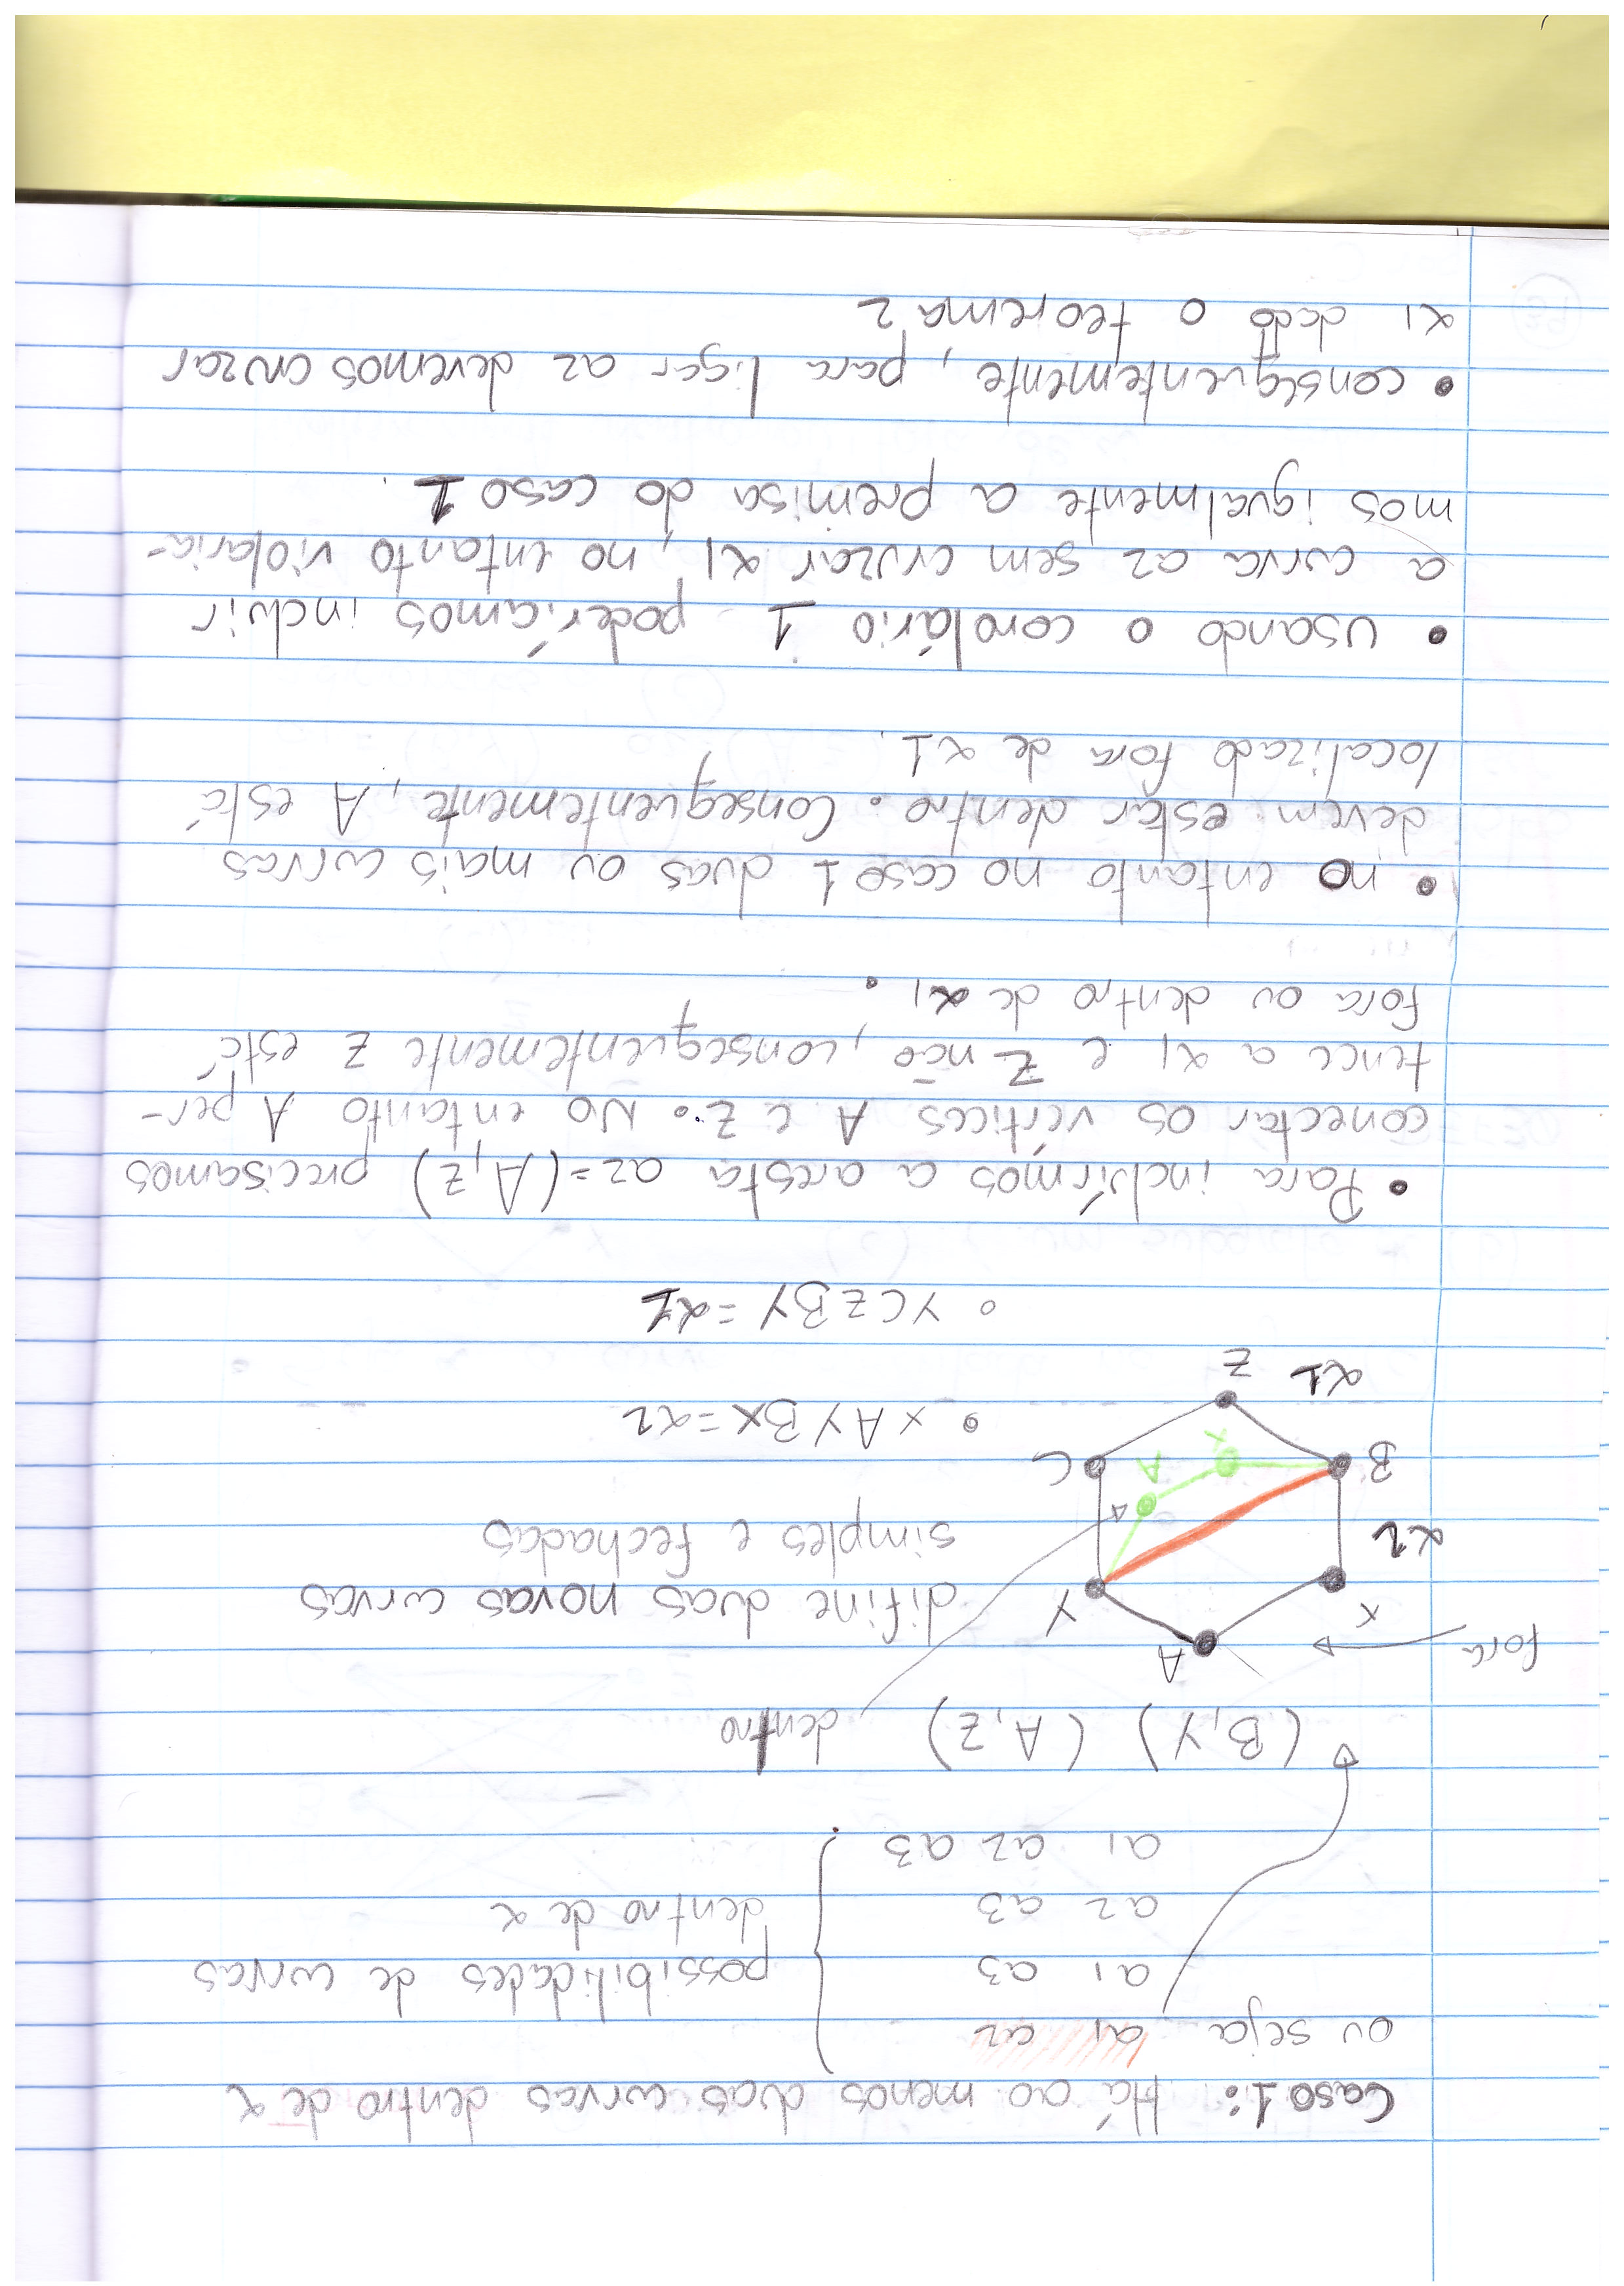 Caso 1: Há ao menos duas curvas dentro de α
ou seja a1 a2
a1 a3
a2 a3
a1 a2 a3
possibilidades de curvas
dentro de α
(B,Y) (A,Z) dentro
fora
A
x
Y
α2
B
x
A
C
α1
Z
difine duas novas curvas
simples e fechadas
x A Y B X = α2
Y C Z B Y = α1
• Para incluírmos a aresta a2=(A,Z) precisamos
conectar os vérticos A e Z. No entanto A per-
tence a α1 e Z não, consequentemente Z está
fora ou dentro de α1.
• no entanto no caso 1 duas ou mais curvas
devem estar dentro. Consequentemente, A está
localizado fora de α1.
• usando o corolário 1 poderíamos incluir
a curva a2 sem cruzar α1, no entanto violaria-
mos igualmente a premisa do caso 1.
• consequentemente, para ligar a2 devemos cruzar
α1 dado o teorema 2